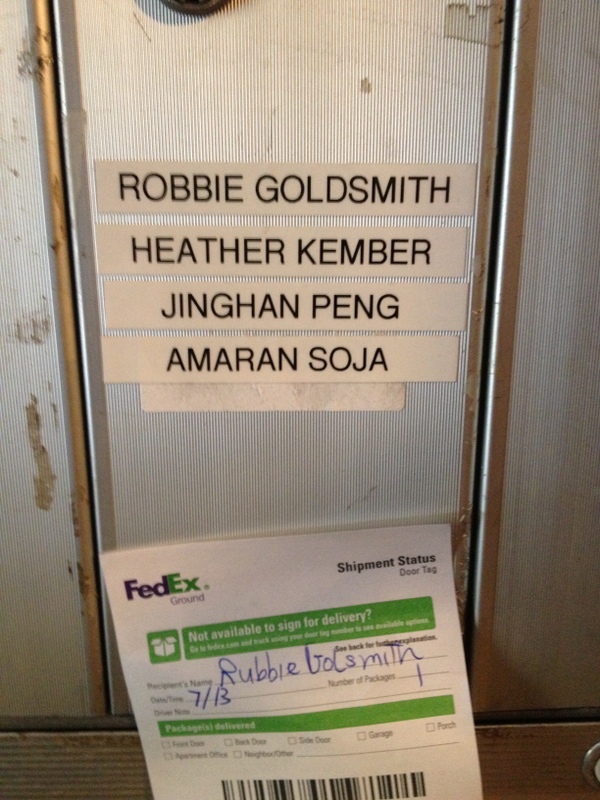 ROBBIE GOLDSMITH
HEATHER KEMBER
JINGHAN PENG
AMARAN SOJA
FedEx®
Ground
Shipment Status
Door Tag
Not available to sign for delivery?
Go to fedex.com and track using your door tag number to see available options.
See back for further explanation.
Recipient's Name Rubbie Golsmith
Date/Time 7/13 Number of Packages 1
Driver Note
Package(s) delivered
Front Door Back Door Side Door Garage Porch
Apartment Office Neighbor/Other